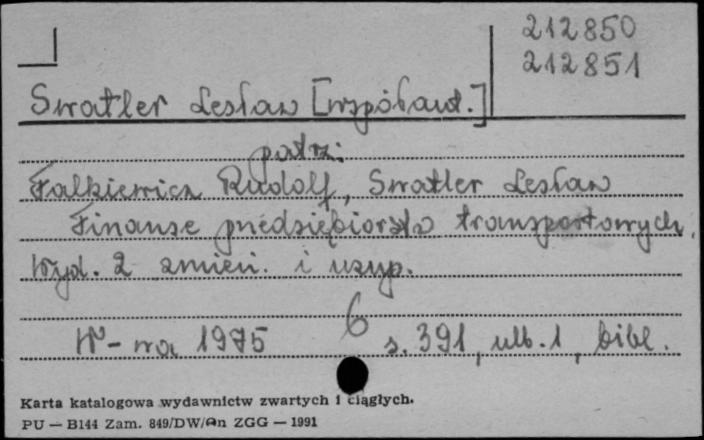 212850
212851
Swatler Lesław [współaut.]
patrz:
Falkiewicz Rudolf, Swatler Lesław
Finanse przedsiębiorstw transportowych.
Wyd. 2 zmien. i uzup.
W-wa 1975 6 s. 391, ulb. 1, bibl.
Karta katalogowa wydawnictw zwartych i ciągłych.
PU — B144 Zam. 849/DW/An ZGG — 1991